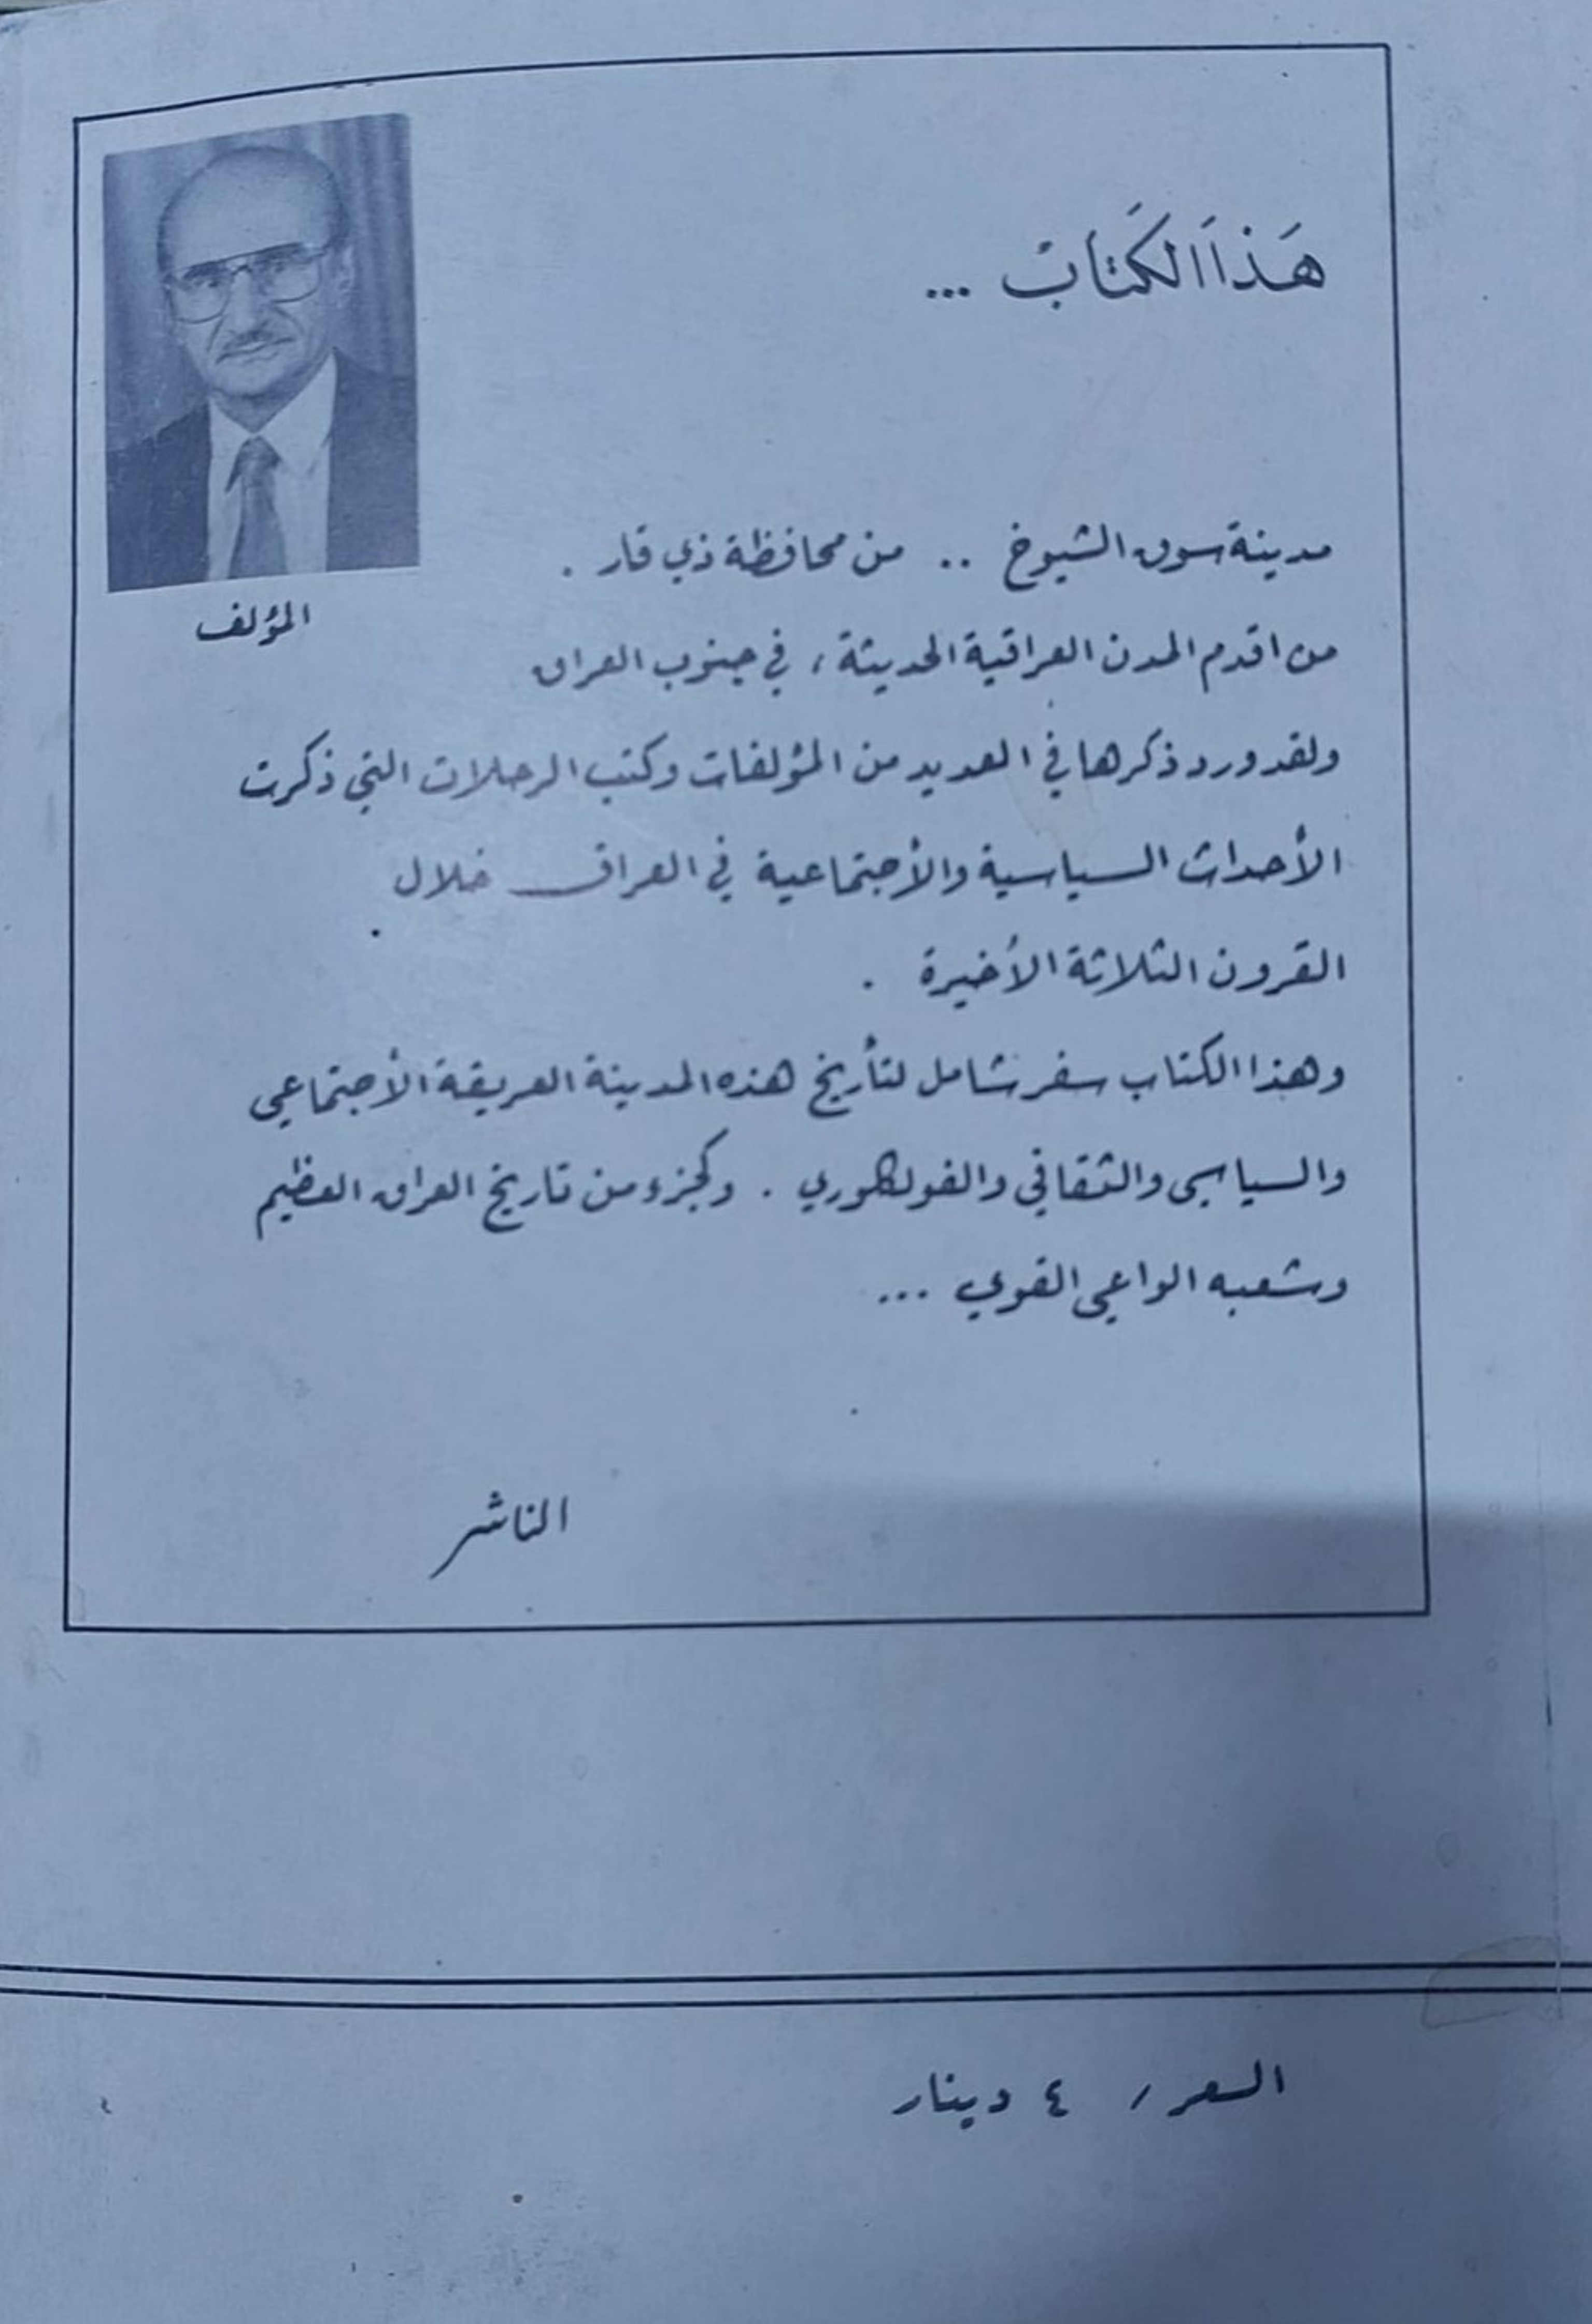 هَذَا الكَتَابْ ...
مدينة سوق الشيوخ .. من محافظة ذي قار .
المؤلف
من اقدم المدن العراقية الحديثة ، في جنوب العراق
ولقد ورد ذكرها في العديد من المؤلفات وكتب الرحلات التي ذكرت
الأحداث السياسية والأجتماعية في العراق خلال
القرون الثلاثة الأخيرة .
وهذا الكتاب سفر شامل لتأريخ هذه المدينة العريقة الأجتماعي
والسياسي والثقافي والفولكلوري . وكجزء من تاريخ العراق العظيم
وشعبه الواعي القوي ...
الناشر
السعر / ٤ دينار